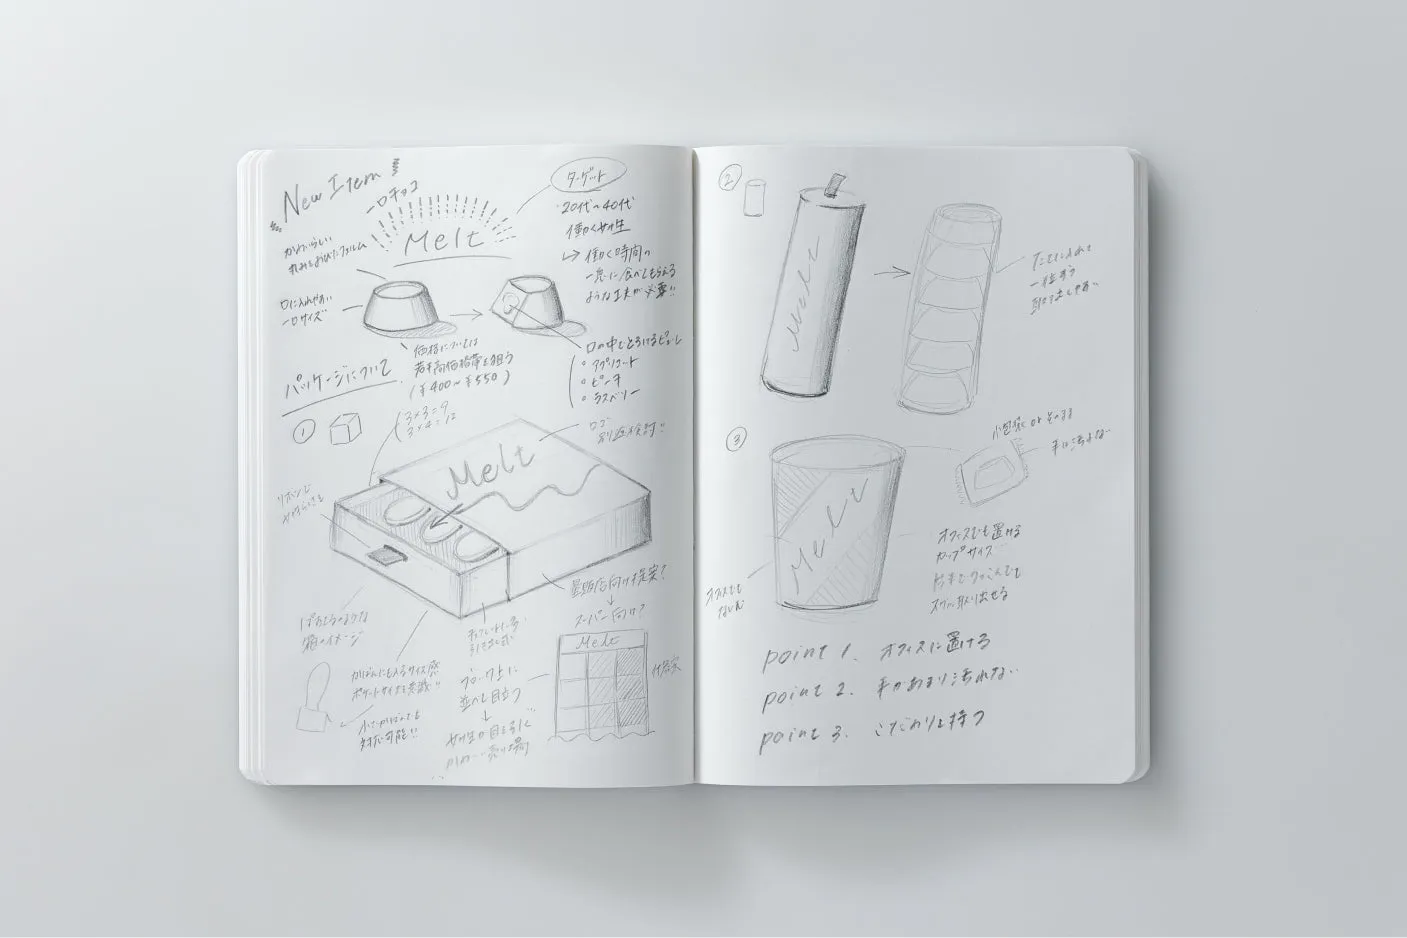 New Item!
一口チョコ
Melt
かわいらしい
丸みをおびたフォルム
口に入れやすい
一口サイズ
ターゲット
20代〜40代
働く女性
↳ 働く時間の
に食べてもらえる
ような工夫が必要!!
価格については
若干高価格帯を狙う
(¥400〜¥550)
口の中でとろけるピューレ
アプリコット
ピーチ
ラズベリー
パッケージについて
①
3×3=9
3×4=12
ロゴ
別途検討!!
Melt
リボンで
箱のイメージ
引き出し式
かばんにも入るサイズ感
ポケットサイズを意識!!
小さいかばんでも
対応可能!!
量販店向け提案?
↓
スーパー向け?
Melt
並べて目立つ
↓
女性の目を引く
かわいい売り場
②
Melt
たてに入れて
一粒ずつ
取り出しやすい
③
Melt
小包装 or そのまま
手は汚れない
オフィスでも置ける
カップサイズ
片手でつまんでも
スグに取り出せる
オフィスでも
point 1. オフィスに置ける
point 2. 手があまり汚れない
point 3. こだわりを持つ